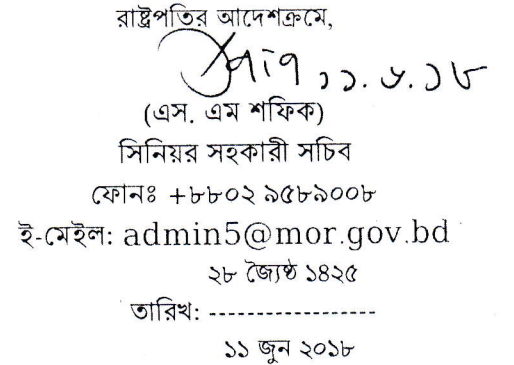 রাষ্ট্রপতির আদেশক্রমে,
১১.৬.১৮
(এস. এম শফিক)
সিনিয়র সহকারী সচিব
ফোনঃ +৮৮০২ ৯৫৮৯০০৮
ই-মেইল: admin5@mor.gov.bd
২৮ জ্যৈষ্ঠ ১৪২৫
তারিখ: ------------------
১১ জুন ২০১৮